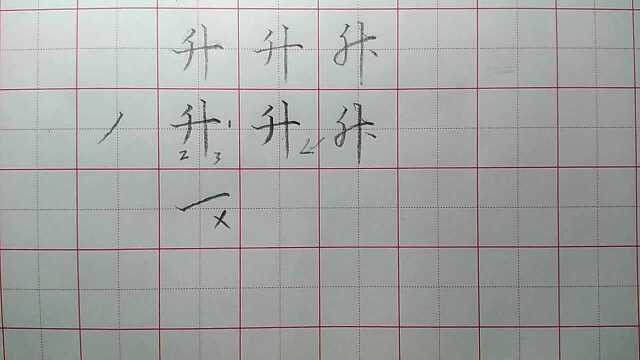 升 升 升
升 1 升 升
2 3
x